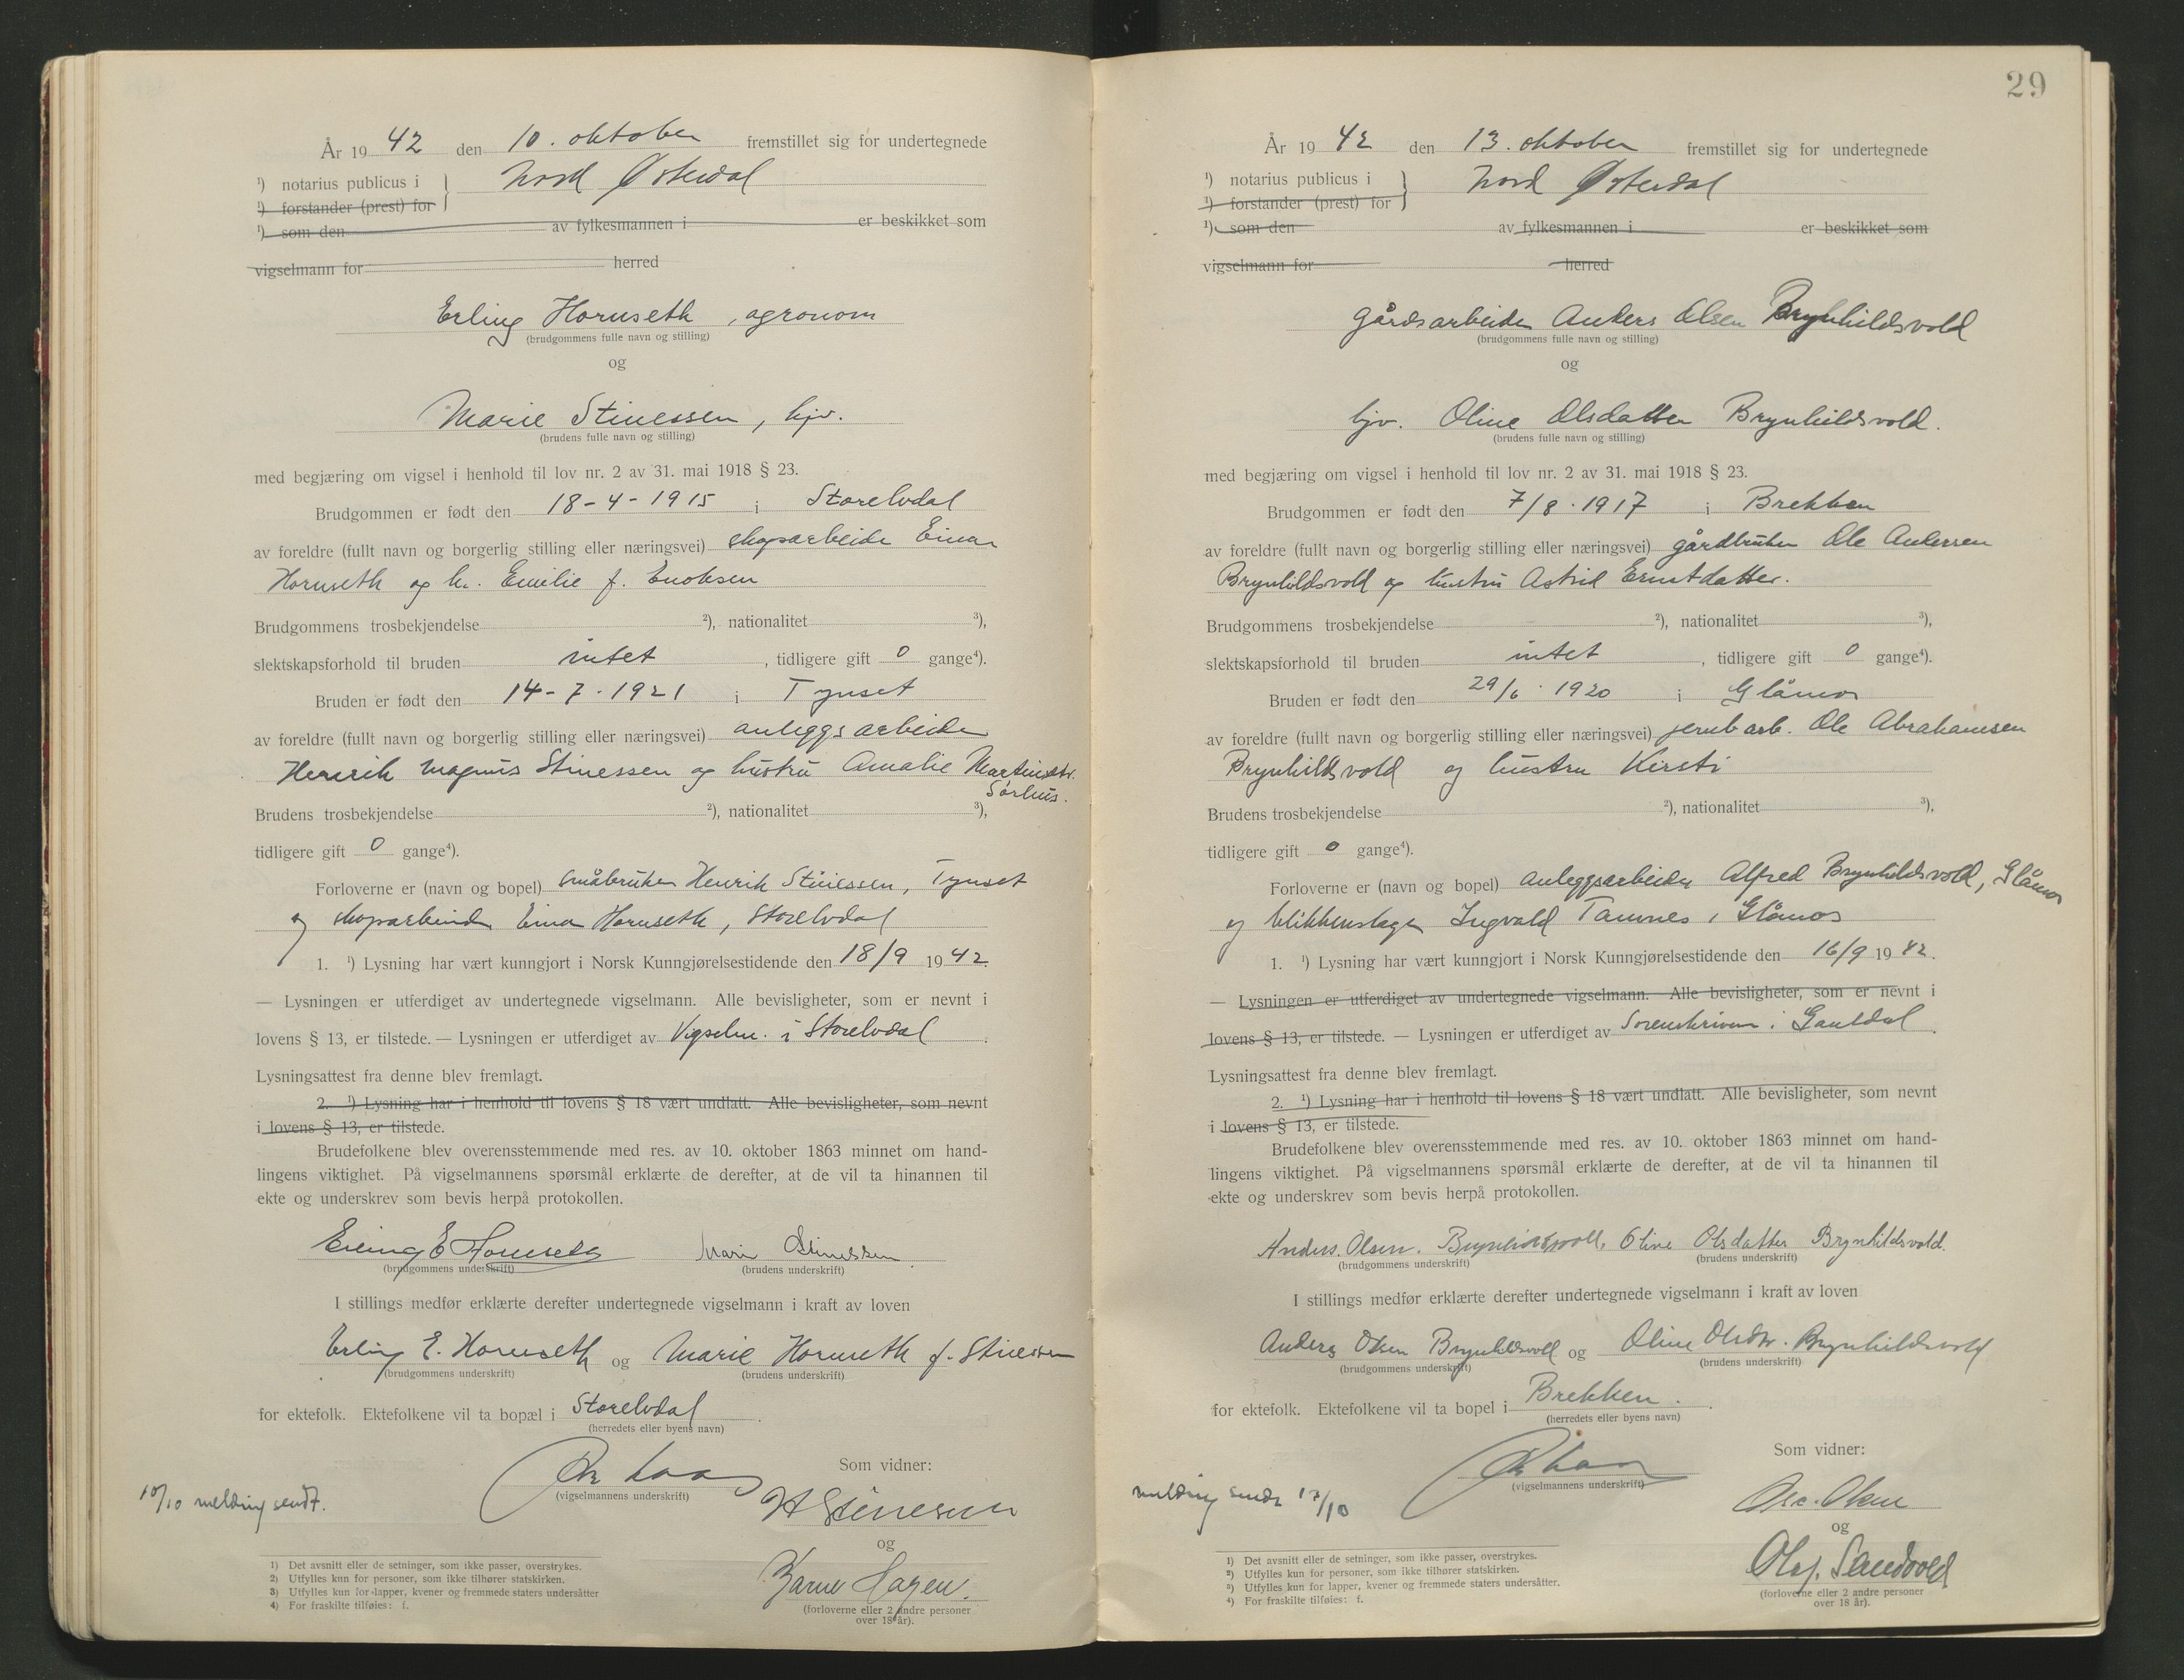 År 1942 den 10. oktober fremstillet sig for undertegnede
¹) notarius publicus i } Nord Østerdal
¹) forstander (prest) for
¹) som den av fylkesmannen i er beskikket som
vigselmann for herred
Erling Hornseth, agronom
(brudgommens fulle navn og stilling)
og
Marie Stinessen, hjv.
(brudens fulle navn og stilling)
med begjæring om vigsel i henhold til lov nr. 2 av 31. mai 1918 § 23.
Brudgommen er født den 18-4-1915 i Storelvdal
av foreldre (fullt navn og borgerlig stilling eller næringsvei) skogsarbeider Einar
Hornseth og h. Emilie f. Enoksen
Brudgommens trosbekjendelse ²), nationalitet ³),
slektskapsforhold til bruden intet, tidligere gift 0 gange⁴).
Bruden er født den 14-7-1921 i Tynset
av foreldre (fullt navn og borgerlig stilling eller næringsvei) anleggsarbeider
Henrik Magnus Stinessen og hustru Amalie Martinsdtr.
Sørhus.
Brudens trosbekjendelse ²), nationalitet ³),
tidligere gift 0 gange⁴).
Forloverne er (navn og bopel) småbruker Henrik Stinessen, Tynset
og skogsarbeider Einar Hornseth, Storelvdal
1. ¹) Lysning har vært kunngjort i Norsk Kunngjørelsestidende den 18/9 1942.
— Lysningen er utferdiget av undertegnede vigselmann. Alle bevisligheter, som er nevnt i
lovens § 13, er tilstede. — Lysningen er utferdiget av Vigselm. i Storelvdal.
Lysningsattest fra denne blev fremlagt.
2. ¹) Lysning har i henhold til lovens § 18 vært undlatt. Alle bevisligheter, som nevnt
i lovens § 13, er tilstede.
Brudefolkene blev overensstemmende med res. av 10. oktober 1863 minnet om hand-
lingens viktighet. På vigselmannens spørsmål erklærte de derefter, at de vil ta hinannen til
ekte og underskrev som bevis herpå protokollen.
Erling E Hornseth Marie Stinessen
(brudgommens underskrift) (brudens underskrift)
I stillings medfør erklærte derefter undertegnede vigselmann i kraft av loven
Erling E. Hornseth og Marie Hornseth f. Stinessen
(brudgommens underskrift) (brudens underskrift)
for ektefolk. Ektefolkene vil ta bopæl i Storelvdal.
(herredets eller byens navn)
Som vidner:
(vigselmannens underskrift)
H Stinessen
10/10 melding sendt.
og
Bjarne Hagen.
(forloverne eller 2 andre personer
over 18 år).
1) Det avsnitt eller de setninger, som ikke passer, overstrykes.
2) Utfylles kun for personer, som ikke tilhører statskirken.
3) Utfylles kun for lapper, kvener og fremmede staters undersåtter
4) For fraskilte tilføies: f.
29
År 1942 den 13. oktober fremstillet sig for undertegnede
¹) notarius publicus i } Nord Østerdal
¹) forstander (prest) for
¹) som den av fylkesmannen i er beskikket som
vigselmann for herred
gårdsarbeider Anders Olsen Brynhildsvold
(brudgommens fulle navn og stilling)
og
hjv. Oline Olsdatter Brynhildsvold.
(brudens fulle navn og stilling)
med begjæring om vigsel i henhold til lov nr. 2 av 31. mai 1918 § 23.
Brudgommen er født den 7/8 . 1917 i Brekken
av foreldre (fullt navn og borgerlig stilling eller næringsvei) gårdbruker Ole Andersen
Brynhildsvold og hustru Astrid Erntdatter.
Brudgommens trosbekjendelse ²), nationalitet ³),
slektskapsforhold til bruden intet, tidligere gift 0 gange⁴).
Bruden er født den 29/6 . 1920 i Glåmos
av foreldre (fullt navn og borgerlig stilling eller næringsvei) jernb arb. Ole Abrahamsen
Brynhildsvold og hustru Kirsti
Brudens trosbekjendelse ²), nationalitet ³),
tidligere gift 0 gange⁴).
Forloverne er (navn og bopel) anleggsarbeider Alfred Brynhildsvold, Glåmos
og blikkenslager Ingvald Tamnes, Glåmos
1. ¹) Lysning har vært kunngjort i Norsk Kunngjørelsestidende den 16/9 1942.
— Lysningen er utferdiget av undertegnede vigselmann. Alle bevisligheter, som er nevnt i
lovens § 13, er tilstede. — Lysningen er utferdiget av Sorenskriveren i Gauldal.
Lysningsattest fra denne blev fremlagt.
2. ¹) Lysning har i henhold til lovens § 18 vært undlatt. Alle bevisligheter, som nevnt
i lovens § 13, er tilstede.
Brudefolkene blev overensstemmende med res. av 10. oktober 1863 minnet om hand-
lingens viktighet. På vigselmannens spørsmål erklærte de derefter, at de vil ta hinannen til
ekte og underskrev som bevis herpå protokollen.
Anders. Olsen. Brynhildsvold, Oline Olsdatter Brynhildsvold.
(brudgommens underskrift) (brudens underskrift)
I stillings medfør erklærte derefter undertegnede vigselmann i kraft av loven
Anders Olsen Brynhildsvold og Oline Olsdtr. Brynhildsvold
(brudgommens underskrift) (brudens underskrift)
for ektefolk. Ektefolkene vil ta bopel i Brekken.
(herredets eller byens navn)
Som vidner:
(vigselmannens underskrift)
melding sendt 17/10
Olsen
og
Olaf. Sandvold
(forloverne eller 2 andre personer
over 18 år).
¹) Det avsnitt eller de setninger, som ikke passer, overstrykes.
²) Utfylles kun for personer, som ikke tilhører statskirken.
³) Utfylles kun for lapper, kvener og fremmede staters undersåtter.
⁴) For fraskilte tilføies: f.